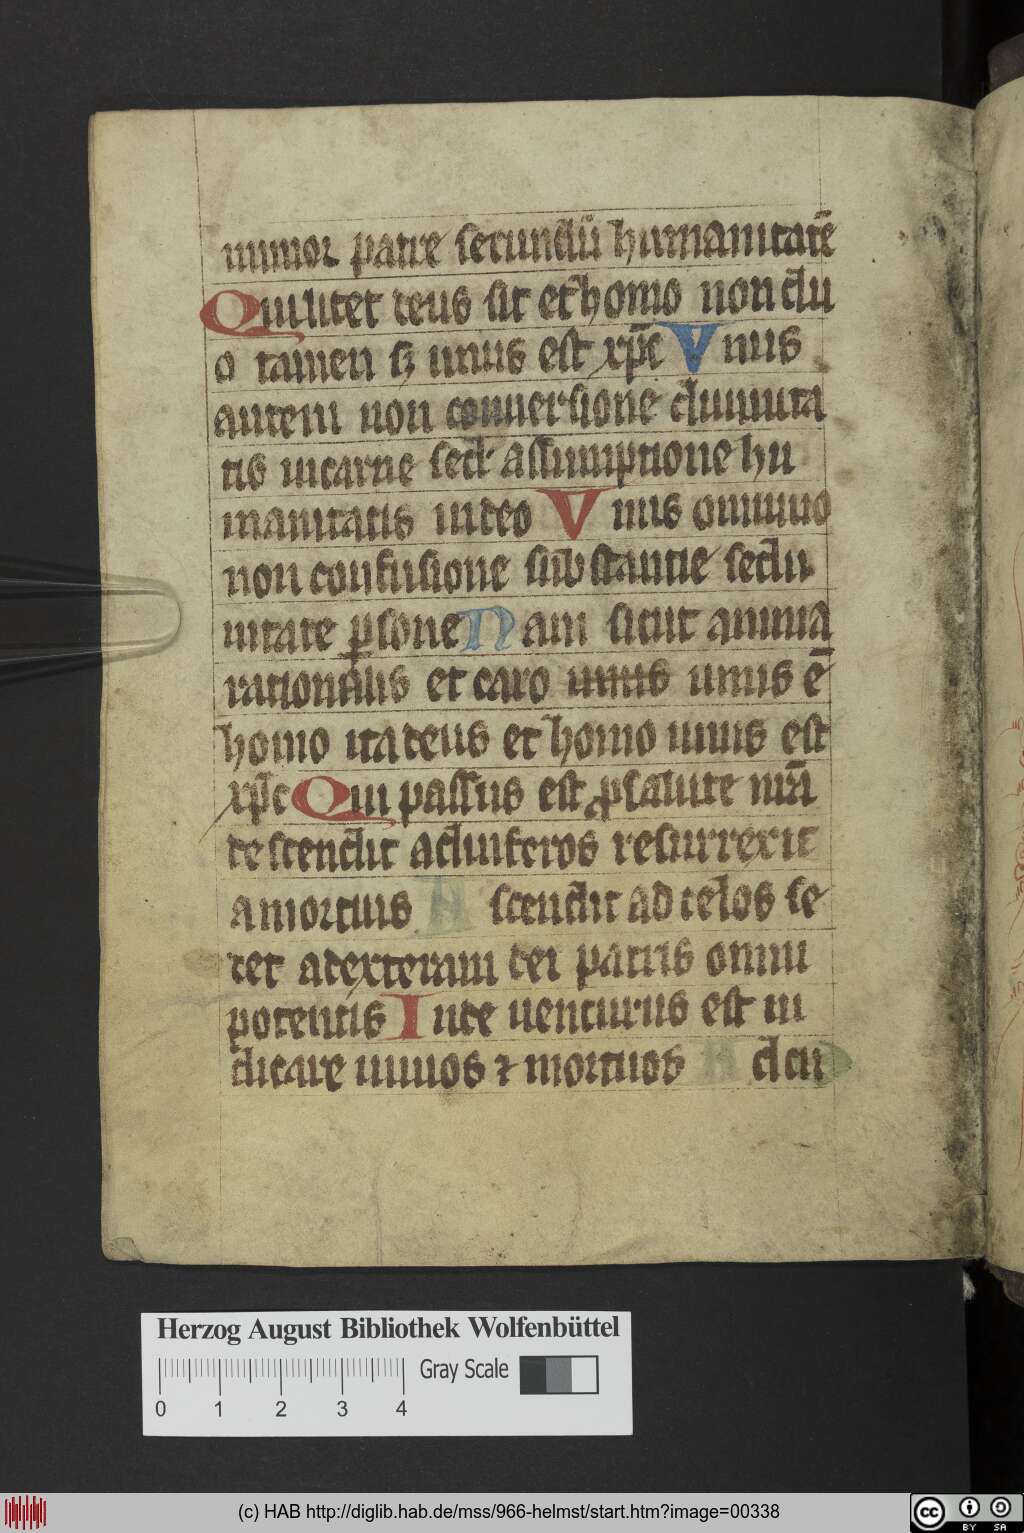 minor patre secundū humanitatē
Quilicet deus sit et homo non du
o tamen sꝫ unus est xp̄c Vnus
autem non conuersione diuinita
tis incarne sed assumptione hu
manitatis indeo Vnus omnino
non confusione substantie sed u
nitate psone Nam sicut anima
rationalis et caro unus unus ē
homo ita deus et homo unus est
xp̄c Qui passus est ꝓ salute nr̄a
descendit ad inferos resurrexit
amortuis Ascendit ad celos se
det adexteram dei patris omni
potentis Inde uenturus est iu
dicare uiuos ⁊ mortuos A dcu
Herzog August Bibliothek Wolfenbüttel
Gray Scale
0 1 2 3 4
(c) HAB http://diglib.hab.de/mss/966-helmst/start.htm?image=00338
cc BY SA